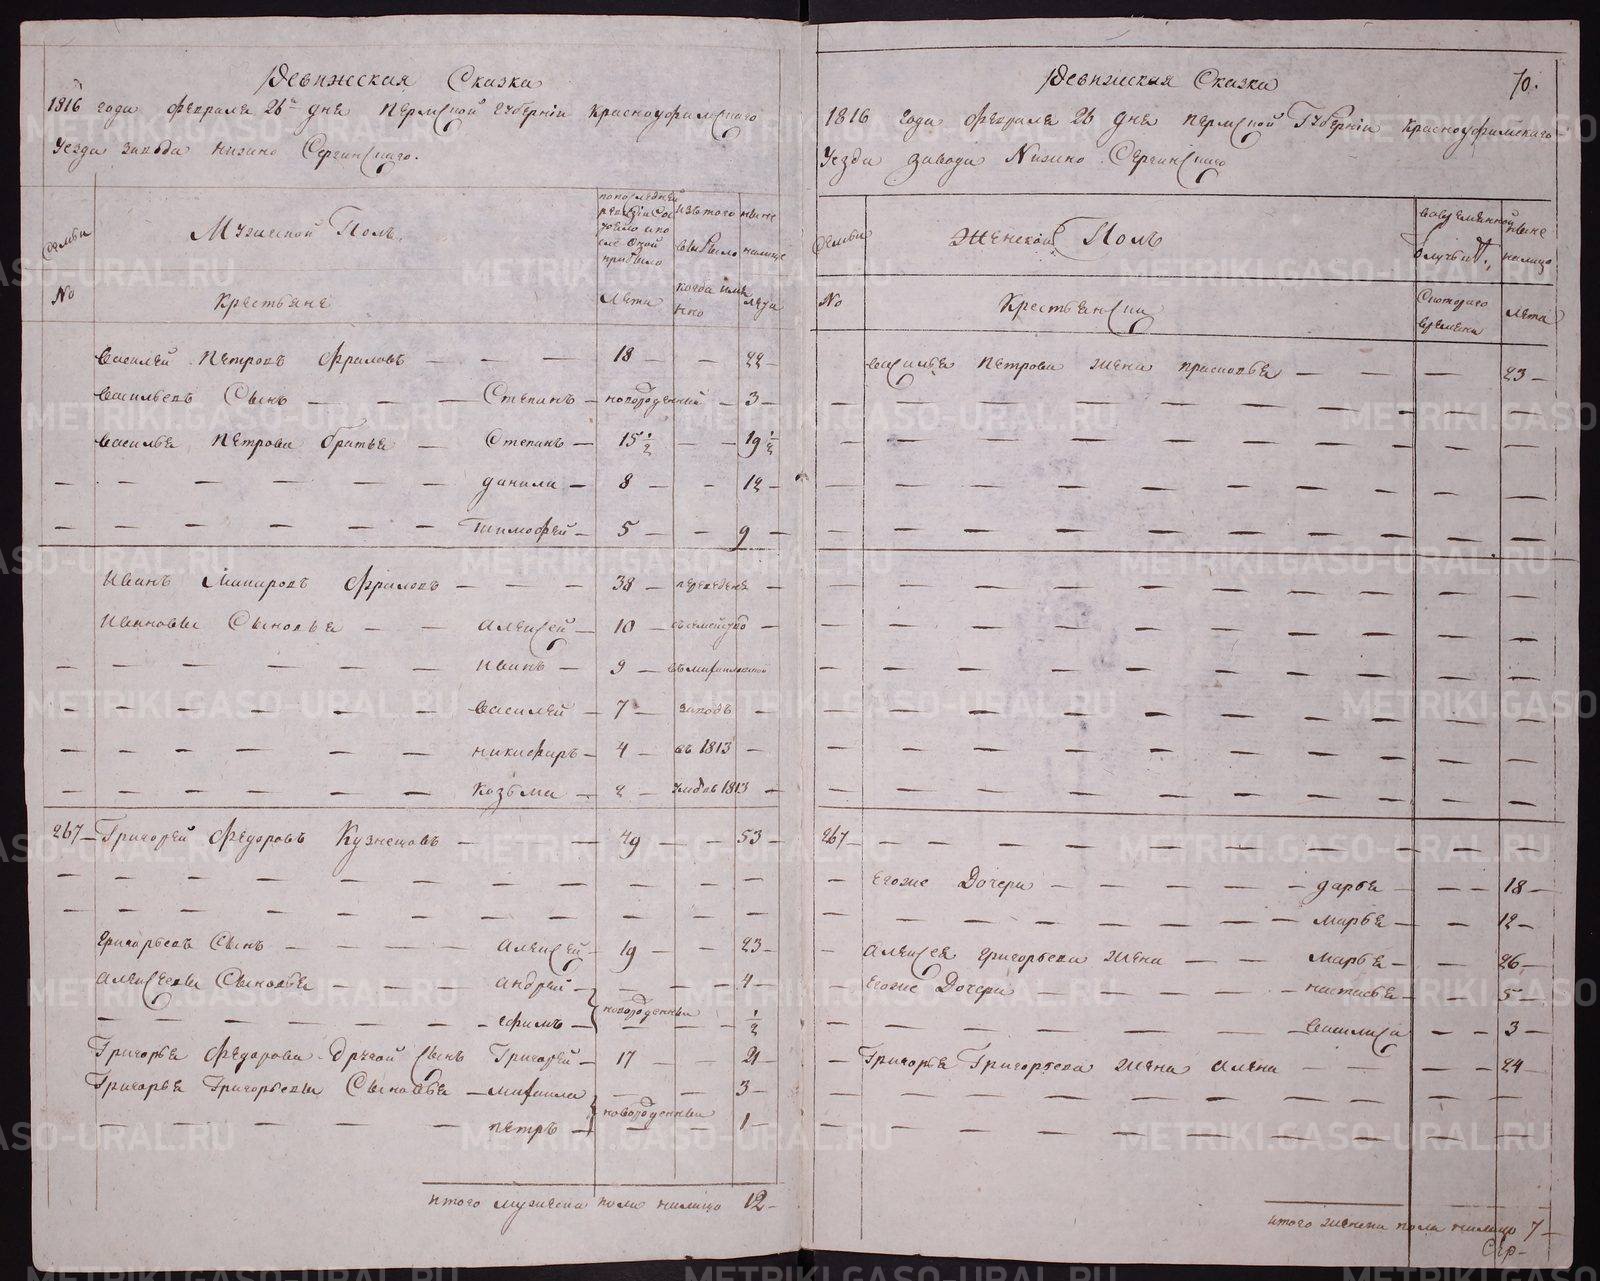 Ревижская Сказка
1816 года февраля 26го дня пермской губернiи Красноуфимского
Уезда завода нижно Сергинского.
Семьи
Мужеской Полъ.
по последней ревизiи состояло и после оной прибыло
изътого выбыло
ныне налицо
№
Крестьяне
Лета
когда имянно
лета
Василей Петровъ Фроловъ — — — 18 — — 22 —
Васильевъ Сынъ — — — Степанъ — новорожденный — 3 —
Василья Петрова братья — Степанъ — 15 1/2 — — 19 1/2
— — — — — — данила — 8 — — 12 —
— — — — — — Тимофей — 5 — — 9 —
Иванъ Макаровъ Фроловъ — — — 38 — переведенъ —
Ивановы Сыновья — — Алексей — 10 — съсемейство —
— — — — — — Иванъ — 9 —
— — — — — — Василей — 7 — заводъ —
— — — — — — никифоръ — 4 — въ 1813 —
— — — — — — Козьма — 2 — 1813 —
267 — Григорей Федоровъ Кузнецовъ — — 49 — — 53 —
Григорьевъ Сынъ — — — Алексей — 19 — — 23 —
Алексеевы Сыновья — — — андрей — — — 4 —
— — — — — — ефимъ — новорожденныи — — 1/2
Григорья Федорова другой Сынъ Григорей — 17 — — 21 —
Григорья Григорьевы Сыновья — михаила — — 3 —
— — — — — — петръ — новорожденныи — 1 —
итого мужеска пола налицо 12 —
Ревижская Сказка
70.
1816 года февраля 26 дня пермской Губернiи красноуфимского
Уезда завода Nижно Сергинского
Семьи
Женской Полъ
вовременной отлучьке
ныне налицо
№
Крестьянски
Скоторого времени
лета
василья петрова жена прасковья — — — — 23 —
267 — — — — — — — — —
Егоже Дочери — — — — — дарья — — — 18 —
— — — — — — марья — — — 12 —
— Алексея григорьева жена — — марья — — — 26 —
— Егоже Дочери — — — — настасья — — — 5 —
— — — — — — василиса — — 3 —
— Григорья Григорьева жена алена — — — — 24 —
итого женска пола налицо 7 —
METRIKI.GASO-URAL.RU